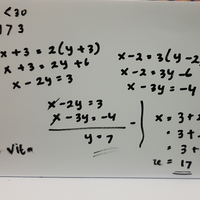 <30
173
x+3 = 2(y+3)
x+3 = 2y+6
x-2y = 3
x-2 = 3(y-2
x-2 = 3y-6
x-3y = -4
x-2y = 3
x-3y = -4
y = 7
x = 3+2
= 3+
= 3+
x = 17